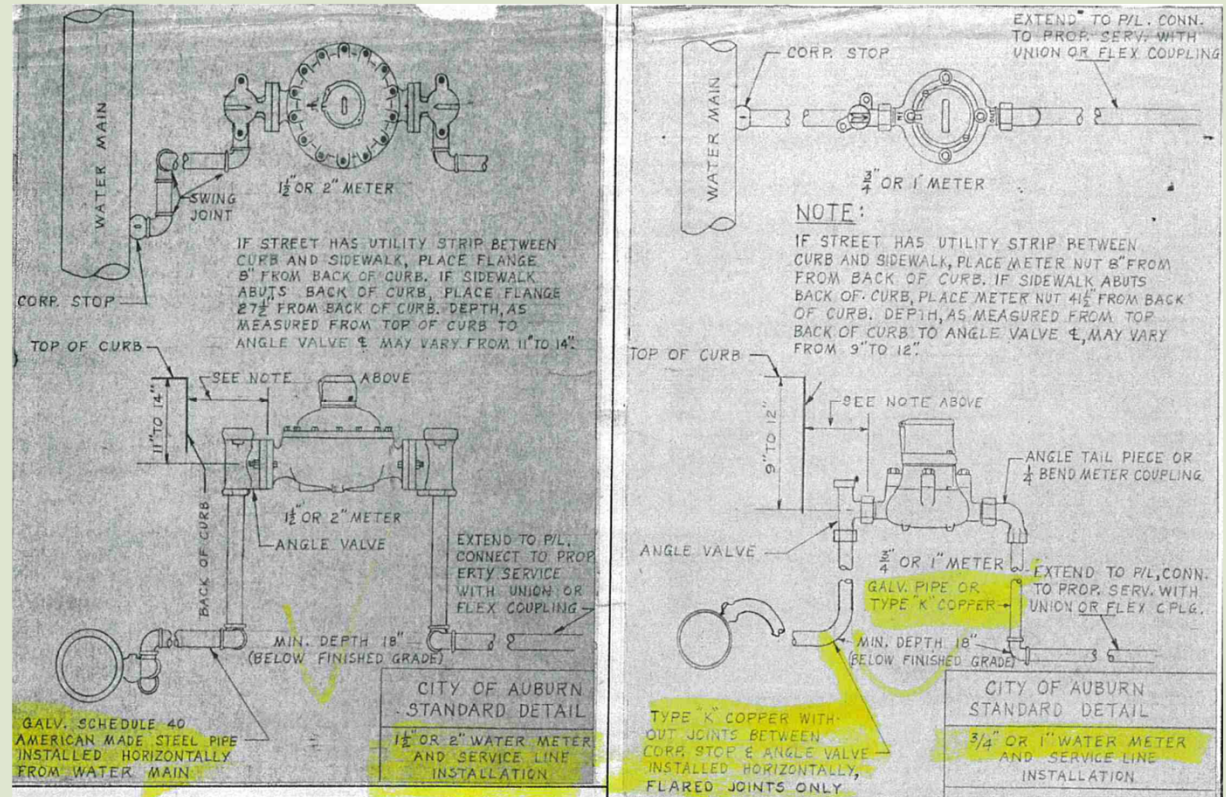 WATER MAIN
SWING
JOINT
1½" OR 2" METER
CORP. STOP
IF STREET HAS UTILITY STRIP BETWEEN
CURB AND SIDEWALK, PLACE FLANGE
8" FROM BACK OF CURB. IF SIDEWALK
ABUTS BACK OF CURB, PLACE FLANGE
27½" FROM BACK OF CURB. DEPTH, AS
MEASURED FROM TOP OF CURB TO
ANGLE VALVE ℄ MAY VARY FROM 11" TO 14".
TOP OF CURB
SEE NOTE ABOVE
11" TO 14"
BACK OF CURB
1½" OR 2" METER
ANGLE VALVE
EXTEND TO P/L.
CONNECT TO PROP
ERTY SERVICE
WITH UNION OR
FLEX COUPLING
MIN. DEPTH 18"
(BELOW FINISHED GRADE)
GALV. SCHEDULE 40
AMERICAN MADE STEEL PIPE
INSTALLED HORIZONTALLY
FROM WATER MAIN
CITY OF AUBURN
STANDARD DETAIL
1½" OR 2" WATER METER
AND SERVICE LINE
INSTALLATION
EXTEND TO P/L. CONN.
TO PROP. SERV. WITH
UNION OR FLEX COUPLING
CORP. STOP
WATER MAIN
¾" OR 1" METER
NOTE:
IF STREET HAS UTILITY STRIP BETWEEN
CURB AND SIDEWALK, PLACE METER NUT 8" FROM
FROM BACK OF CURB. IF SIDEWALK ABUTS
BACK OF CURB, PLACE METER NUT 41½" FROM BACK
OF CURB. DEPTH, AS MEASURED FROM TOP
BACK OF CURB TO ANGLE VALVE ℄, MAY VARY
FROM 9" TO 12".
TOP OF CURB
SEE NOTE ABOVE
9" TO 12"
ANGLE TAIL PIECE OR
¼ BEND METER COUPLING
ANGLE VALVE
¾" OR 1" METER
GALV. PIPE OR
TYPE "K" COPPER
EXTEND TO P/L, CONN.
TO PROP. SERV. WITH
UNION OR FLEX CPLG.
MIN. DEPTH 18"
(BELOW FINISHED GRADE)
TYPE "K" COPPER WITH-
OUT JOINTS BETWEEN
CORP. STOP & ANGLE VALVE
INSTALLED HORIZONTALLY,
FLARED JOINTS ONLY
CITY OF AUBURN
STANDARD DETAIL
3/4" OR 1" WATER METER
AND SERVICE LINE
INSTALLATION